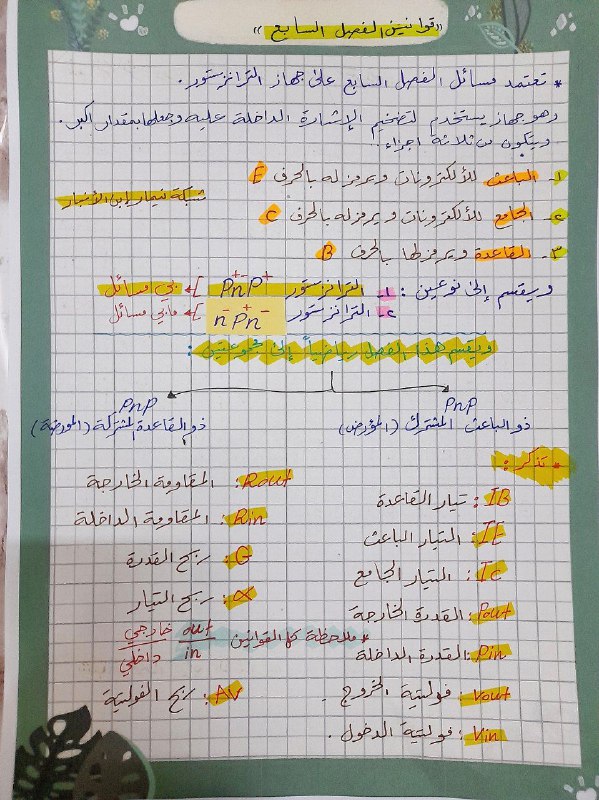 "قوانين الفصل السابع"
* تعتمد مسائل الفصل السابع على جهاز الترانزستور.
وهو جهاز يستخدم لتضخيم الإشارة الداخلة عليه وجعلها بمقدار اكبر.
ويتكون من ثلاثة اجزاء:
١- الباعث للألكترونات ويرمز له بالحرف E
شبكة نيمار إبن الأنبار
٢- الجامع للألكترونات ويرمز له بالحرف C
٣- القاعدة ويرمز لها بالحرف B
ويقسم إلى نوعين: ١- الترانزستور P⁺n⁻P⁺ ] ← بي مسائل
٢- الترانزستور n⁻P⁺n⁻ ] ← مابي مسائل
ويقسم هذا الفصل رياضياً إلى مجموعتين:
PnP
ذو الباعث المشترك (المؤرض)
PnP
ذو القاعدة المشتركة (المؤرضة)
* تذكر:
IB: تيار القاعدة
IE: التيار الباعث
Ic: التيار الجامع
Pout: القدرة الخارجة
Pin: القدرة الداخلة
Vout: فولتية الخروج.
Vin: فولتية الدخول.
Rout: المقاومة الخارجة
Rin: المقاومة الداخلة
G: ربح القدرة
α: ربح التيار
* ملاحظة كل القوانين out خارجي
in داخلي
AV: ربح الفولتية